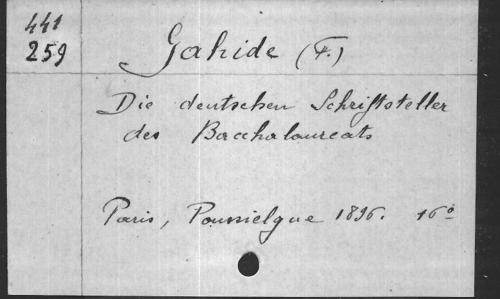 441
259
Gahide (F.)
Die deutschen Schriftsteller
des Baccalaureats
Paris, Poussielgue 1896. 16º